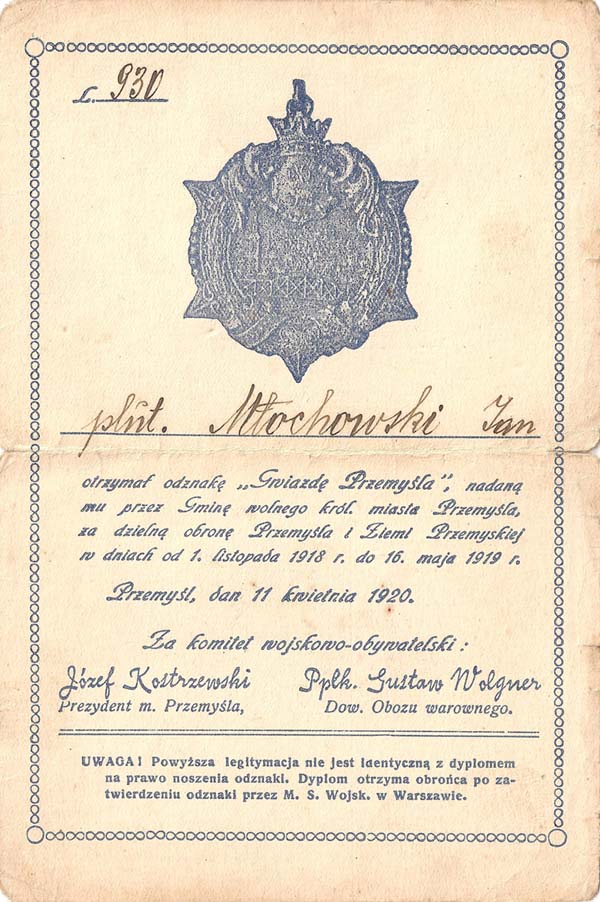 L. 930
plut. Młochowski Jan
otrzymał odznakę „Gwiazdę Przemyśla", nadaną
mu przez Gminę wolnego król. miasta Przemyśla,
za dzielną obronę Przemyśla i Ziemi Przemyskiej
w dniach od 1. listopada 1918 r. do 16. maja 1919 r.
Przemyśl, dan 11 kwietnia 1920.
Za komitet wojskowo-obywatelski :
Józef Kostrzewski
Prezydent m. Przemyśla,
Ppłk. Gustaw Wolgner
Dow. Obozu warownego.
UWAGA! Powyższa legitymacja nie jest identyczną z dyplomem
na prawo noszenia odznaki. Dyplom otrzyma obrońca po za-
twierdzeniu odznaki przez M. S. Wojsk. w Warszawie.